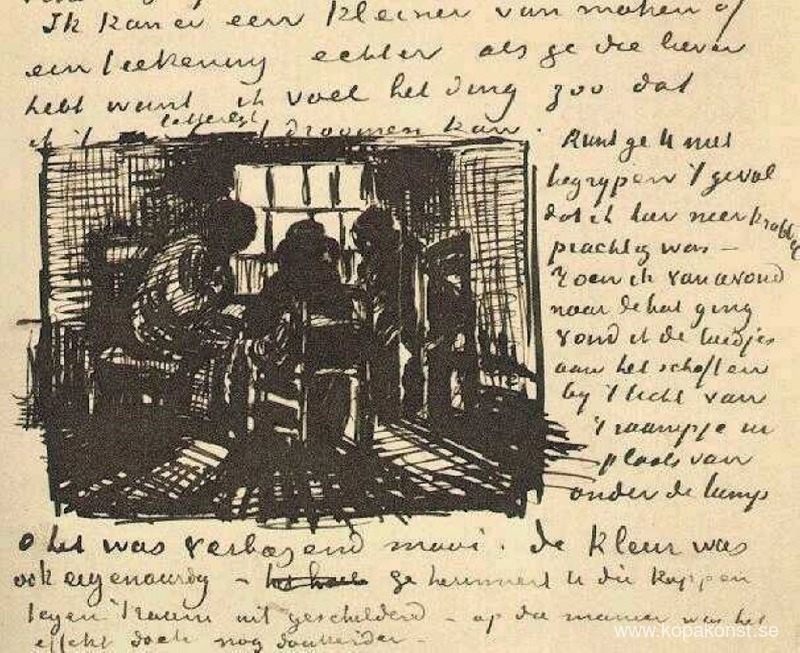 Ik kan er een kleiner van maken of
een teekening echter als ge die liever
hebt want ik voel het ding zoo dat
ik 't letterlijk droomen kan.
Kunt ge U niet
begrypen 't geval
dat ik hier neerkrabbel
prachtig was –
Toen ik van avond
naar de hut ging
vond ik de luidjes
aan het schoften
by 't licht van
't raampje in
plaats van
onder de lamp
O het was verbazend mooi. de kleur was
ook eigenaardig – ge herinnert U die koppen
tegen 't raam uit geschilderd – op die manier was het
effekt doch nog donkerder –
www.kopakonst.se